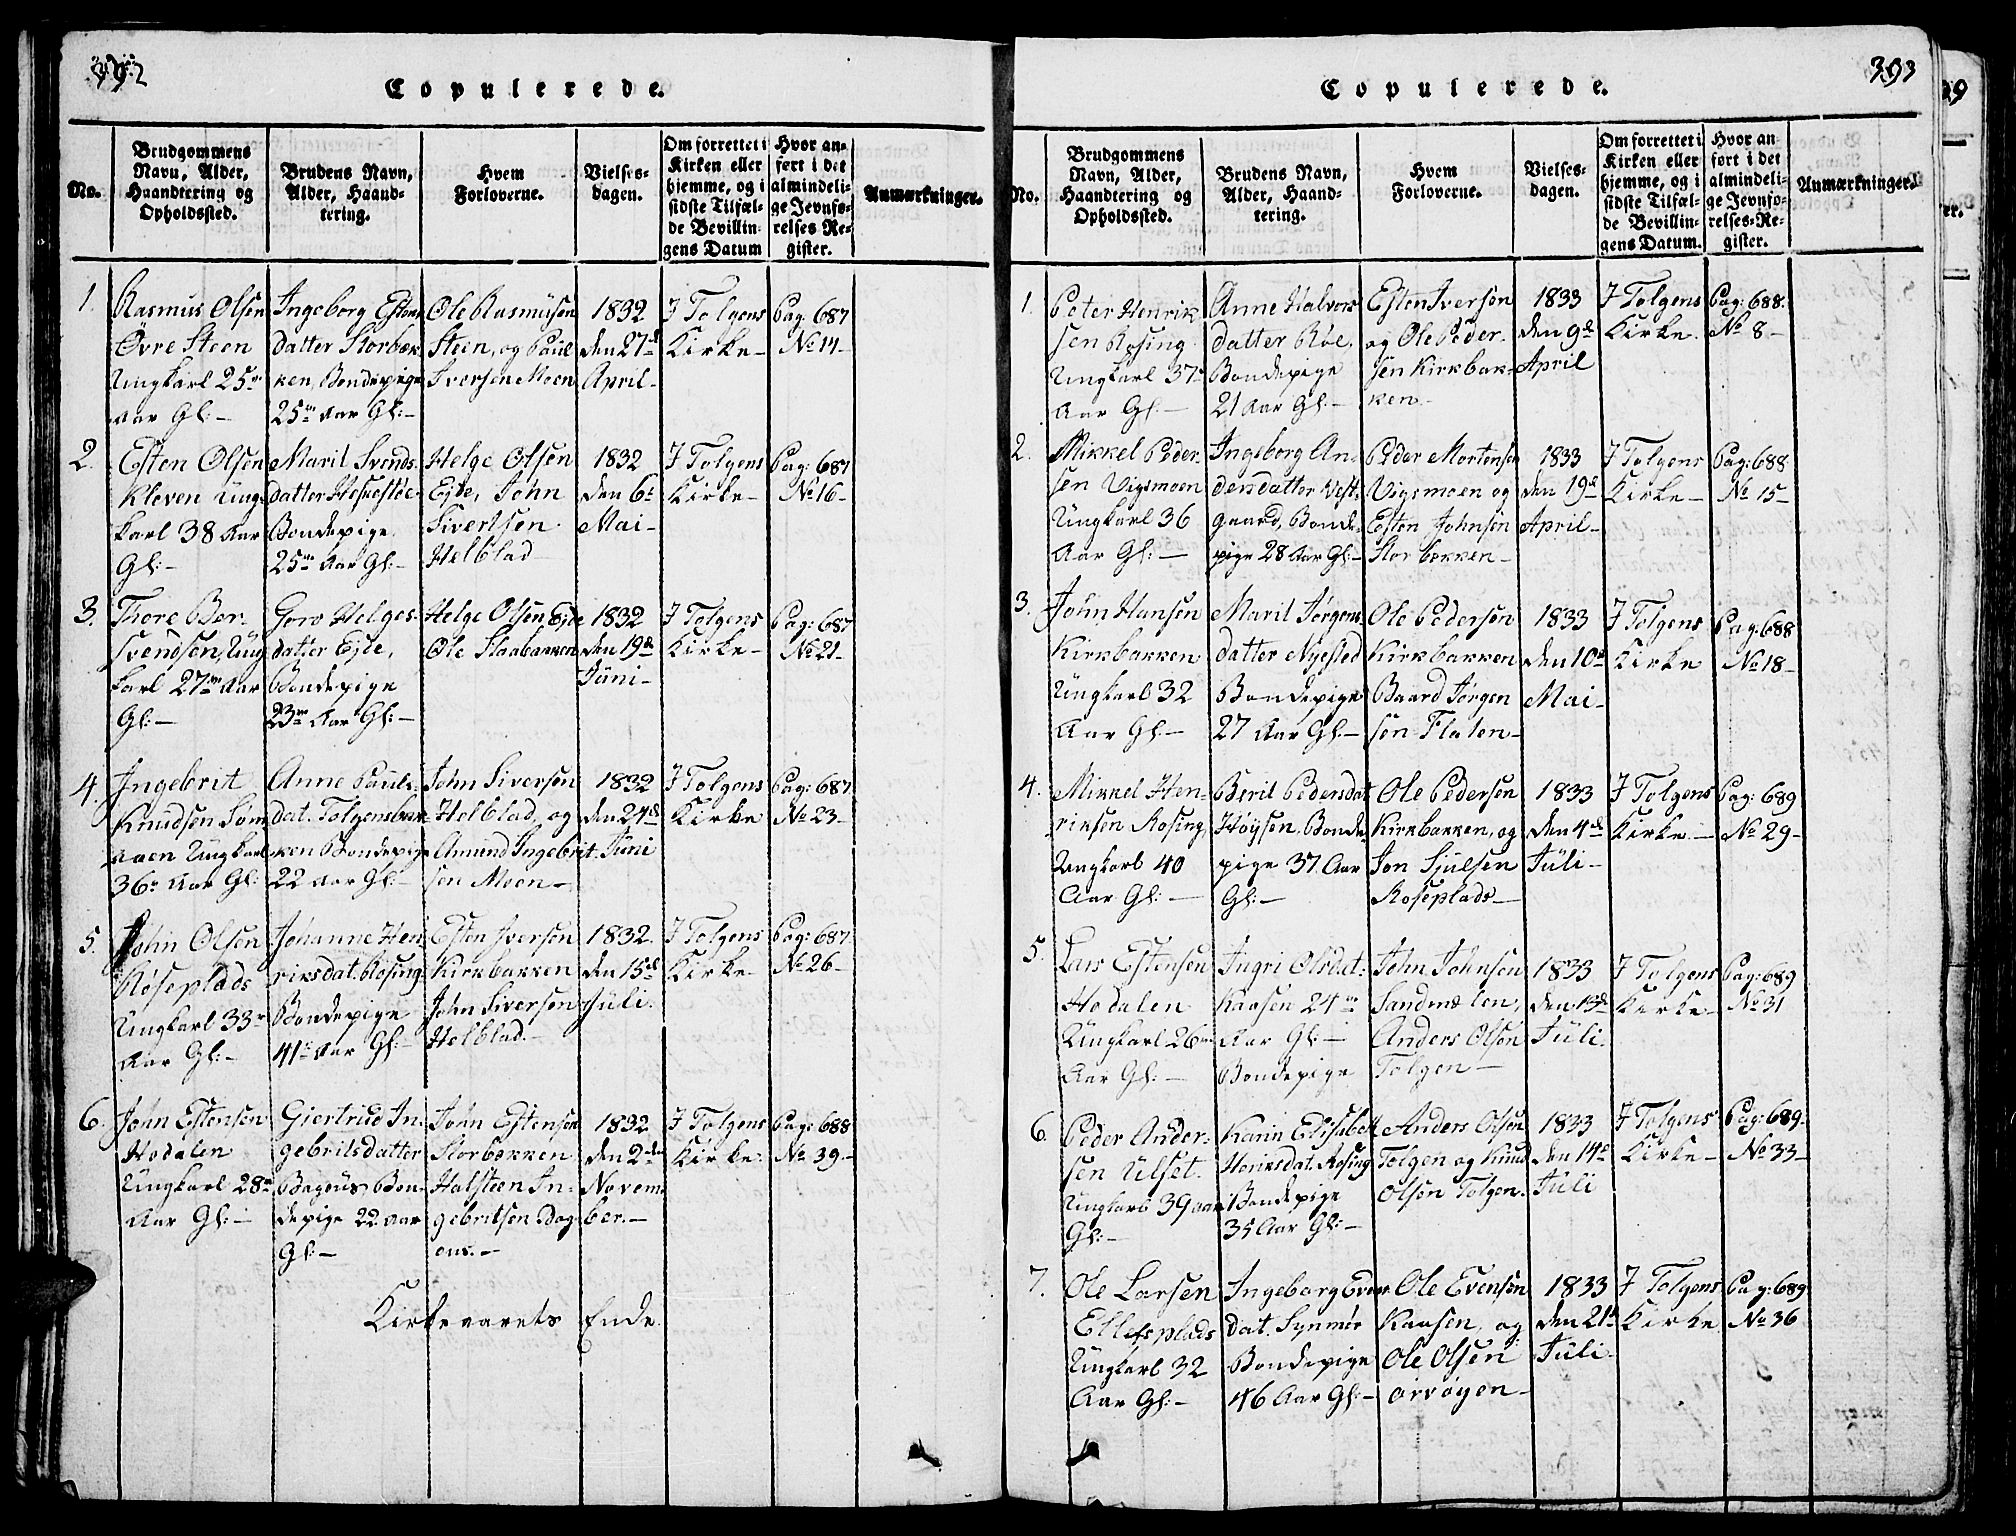 392
Copulerede.
No.
Brudgommens
Navn, Alder,
Haandtering og
Opholdssted.
Brudens Navn,
Alder, Haand-
tering.
Hvem
Forloverne.
Vielses-
dagen.
Om forrettet i
Kirken eller
hjemme, og i
sidste Tilfæl-
de Bevillin-
gens Datum
Hvor an-
ført i det
almindeli-
ge Jevnfø-
relses Re-
gister.
Anmærkninger.
1.
Rasmus Olsen
Övre Steen
Ungkarl 25
Aar Gl:-
Ingeborg Estens
datter Storbæk
ken, Bondepige
25 Aar Gl:-
Ole Rasmusen
Steen, og Paul
Iversen Moen
1832
den 27de
April-
I Tolgens
Kirke-
Pag. 687
No 14-
2.
Esten Olsen
Kleven Ung-
karl 38 Aar
Gl:-
Maril Svends
datter
Bondepige
25 Aar Gl:-
Helge Olsen
Eide, John
Sivertsen
Helblad
1832
den 6-
Mai-
I Tolgens
Kirke-
Pag: 687
No 16-
3.
Thore Ber-
svendsen, Ung
karl 27 Aar
Gl:-
Goro Helges-
datter Eide,
Bondepige
23 Aar Gl:-
Helge Olsen Eide
Ole
1832
den 19de
Juni-
I Tolgens
Kirke-
Pag: 687
No 21-
4.
Ingebrit
Knudsen
Ungkarl
36 Aar Gl:
Anne Pauls-
dat. Tolgensbæk-
ken Bondepige
22 Aar Gl:-
John Siversen
Helblad, og
Amund Ingebrit-
sen Moen-
1832
den 24de
Juni
I Tolgens
Kirke
Pag: 687
No 23-
5.
John Olsen
Röseplads
Ungkarl 33
Aar Gl:-
Johanne Hen
riksdat. Rosing
Bondepige
41 Aar Gl:-
Esten Iversen
Kirkbakken
John Siversen
Helblad.-
1832.
den 15de
Juli.
I Tolgens
Kirke-
Pag: 687
No 26-
6.
John Estensen
Hodalen
Ungkarl 28
Aar Gl:-
Giertrud In-
gebritsdatter
Bon-
depige 22 Aar
Gl:-
John Estensen
Storbekken
Halsteen In-
gebritsen
1832
den 2den
Novem
ber.-
I Tolgens
Kirke-
Pag: 688
No 39.-
Kirkeaarets Ende.
393
Copulerede.
No.
Brudgommens
Navn, Alder,
Haandtering og
Opholdssted.
Brudens Navn,
Alder, Haand-
tering.
Hvem
Forloverne.
Vielses-
dagen.
Om forrettet i
Kirken eller
hjemme, og i
sidste Tilfæl-
de Bevillin-
gens Datum.
Hvor an-
ført i det
almindeli-
ge Jevnfø-
relses-Re-
gister.
Anmærkninger.
1.
Peter Henrik
sen Rosing
Ungkarl 37
Aar Gl:-
Anne Halvors
datter Röe,
Bondepige
21 Aar Gl:-
Esten Iversen
og Ole Peder-
sen Kirkbak-
ken-
1833
den 9de
April
I Tolgens
Kirke.
Pag: 688.
No 8-
2.
Mikkel Peder-
sen Vigsmoen
Ungkarl 36
Aar Gl:-
Ingeborg An-
dersdatter Vest-
gaard, Bonde-
pige 28 Aar Gl:-
Peder Mortensen
Vigsmoen og
Esten Johnsen
Storbekken-
1833
den 19de
April-
I Tolgens
Kirke-
Pag: 688
No 15-
3.
John Hansen
Kirkbakken
Ungkarl 32
Aar Gl:-
Maril Jörgens
datter Nyested
Bondepige
27 Aar Gl:-
Ole Pedersen
Kirkbakken
Baard Jörgen
sen Flaten-
1833
den 10de
Mai-
I Tolgens
Kirke
Pag: 688
No 18-
4.
Mikkel Hen-
riksen Rosing
Ungkarl 40
Aar Gl:-
Beril Pedersdat
Höysen, Bonde-
pige 37 Aar
Gl:-
Ole Pedersen
Kirkbakken, og
Jon Sjulsen
Roseplads-
1833
den 4de
Juli-
I Tolgens
Kirke-
Pag: 689
No 29-
5.
Lars Estensen
Hodalen
Ungkarl 26
Aar Gl:-
Ingri Olsdat:
Kaasen 24
Aar Gl:-
Bondepige
John Johnsen
Sandmælen,
Anders Olsen
Tolgen-
1833
den 13de
Juli.
I Tolgens
Kirke-
Pag: 689
No 31
6.
Peder Ander-
sen Ulset.
Ungkarl 39 aar
Gl:-
Karin Elisabet
Henriksdat. Rosing
Bondepige
35 Aar Gl:-
Anders Olsen
Tolgen og Knud
Olsen Tolgen.
1833
den 14de
Juli
I Tolgens
Kirke-
Pag: 689.
No 33-
7.
Ole Larsen
Ellefsplads
Ungkarl 32
Aar Gl:-
Ingeborg Evens
dat. Synmör
Bondepige
46 Aar Gl:-
Ole Evensen
Kaasen, og
Ole Olsen
Orvögen-
1833
den 21de
Juli-
I Tolgens
Kirke
Pag: 689
No 36